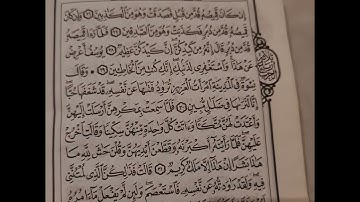 إِن كَانَ قَمِيصُهُۥ قُدَّ مِن قُبُلٍ فَصَدَقَتْ وَهُوَ مِنَ ٱلْكَٰذِبِينَ ٢٦ وَإِن كَانَ
قَمِيصُهُۥ قُدَّ مِن دُبُرٍ فَكَذَبَتْ وَهُوَ مِنَ ٱلصَّٰدِقِينَ ٢٧ فَلَمَّا رَءَا قَمِيصَهُۥ
قُدَّ مِن دُبُرٍ قَالَ إِنَّهُۥ مِن كَيْدِكُنَّ إِنَّ كَيْدَكُنَّ عَظِيمٌ ٢٨ يُوسُفُ أَعْرِضْ
عَنْ هَٰذَا وَٱسْتَغْفِرِى لِذَنۢبِكِ إِنَّكِ كُنتِ مِنَ ٱلْخَاطِـِٔينَ ٢٩ ۞ وَقَالَ
نِسْوَةٌ فِى ٱلْمَدِينَةِ ٱمْرَأَتُ ٱلْعَزِيزِ تُرَٰوِدُ فَتَىٰهَا عَن نَّفْسِهِۦ قَدْ شَغَفَهَا حُبًّا
إِنَّا لَنَرَىٰهَا فِى ضَلَٰلٍ مُّبِينٍ ٣٠ فَلَمَّا سَمِعَتْ بِمَكْرِهِنَّ أَرْسَلَتْ إِلَيْهِنَّ
وَأَعْتَدَتْ لَهُنَّ مُتَّكَـًٔا وَءَاتَتْ كُلَّ وَٰحِدَةٍ مِّنْهُنَّ سِكِّينًا وَقَالَتِ ٱخْرُجْ
عَلَيْهِنَّ فَلَمَّا رَأَيْنَهُۥٓ أَكْبَرْنَهُۥ وَقَطَّعْنَ أَيْدِيَهُنَّ وَقُلْنَ حَٰشَ لِلَّهِ مَا
هَٰذَا بَشَرًا إِنْ هَٰذَآ إِلَّا مَلَكٌ كَرِيمٌ ٣١ قَالَتْ فَذَٰلِكُنَّ ٱلَّذِى لُمْتُنَّنِى
فِيهِ وَلَقَدْ رَٰوَدتُّهُۥ عَن نَّفْسِهِۦ فَٱسْتَعْصَمَ وَلَئِن لَّمْ يَفْعَلْ مَآ ءَامُرُهُۥ